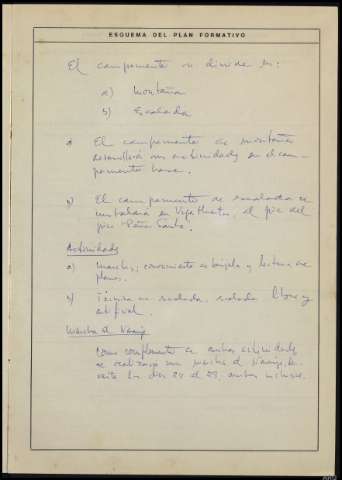 ESQUEMA DEL PLAN FORMATIVO
El campamento se divide en:
a) Montaña
b) Escalada
a) El campamento de montaña
desarrollará sus actividades en el cam-
pamento base.
b) El campamento de escalada se
instalará en Vega Huerta, al pie del
pico Peña Santa.
Actividades
a) Marchas, conocimiento de brújula y lectura de
planos.
b) Técnica de escalada, escalada libre y
artificial.
Marcha al
Como complemento de ambas actividades
se realizará una marcha al
los días 24 al 29, ambos inclusive.